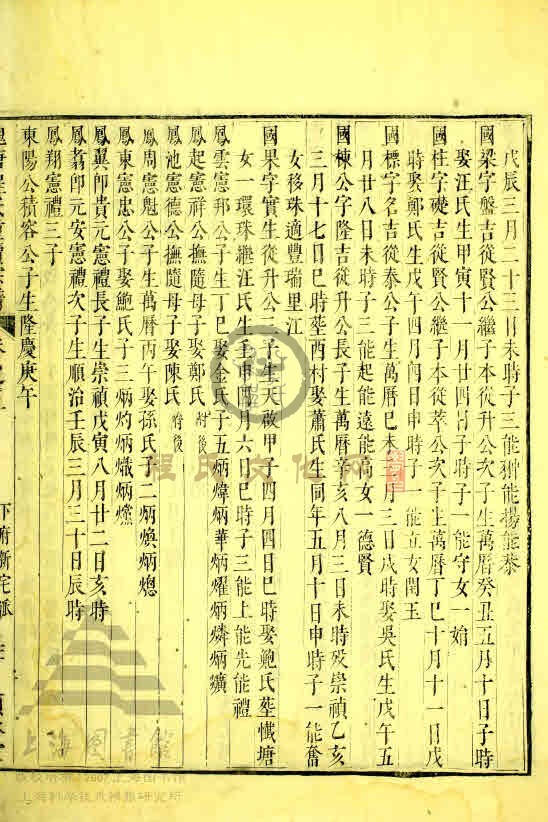 戊辰三月二十三日未時子三能翀能楊能泰
國梁字盤吉從賢公繼子本從升公次子生萬曆癸丑五月十日子時
娶汪氏生甲寅十一月廿四日子時子一能守女一娟
國柱字礎吉從賢公繼子本從萃公次子生萬曆丁巳十月十一日戌
時娶鄭氏生戊午四月申時子一能立女閏玉
國標字名吉從泰公子生萬曆己未月三日戌時娶吳氏生戊午五
月廿八日未時子三能起能遠能高女一德賢
國棟公字隆吉從升公長子生萬曆辛亥八月三日未時歿崇禎乙亥
三月十七日巳時葬西村娶蕭氏生同年五月十日申時子一能奮
女移珠適豐瑞里江
國果字實生從升公三子生天啟甲子四月四日巳時娶鮑氏葬塘
女一環珠繼汪氏生壬申四月六日巳時子三能上能先能禮
鳳雲憲邦公子生丁巳娶金氏子五炳煒炳華炳燿炳燐炳爌
鳳起憲祥公撫隨母子娶鄭氏附後
鳳池憲德公撫隨母子娶陳氏附後
鳳周憲魁公子生萬曆丙午娶孫氏子二炳煥炳熜
鳳東憲忠公子娶鮑氏子三炳灼炳熾炳爃
鳳翼師貴元憲禮長子生崇禎戊寅八月廿二日亥時
鳳翥師元安憲禮次子生順治壬辰三月三十日辰時
鳳翔憲禮三子
東陽公積容公子生隆慶庚午
下府新宅派
程氏文化网
上海圖書館